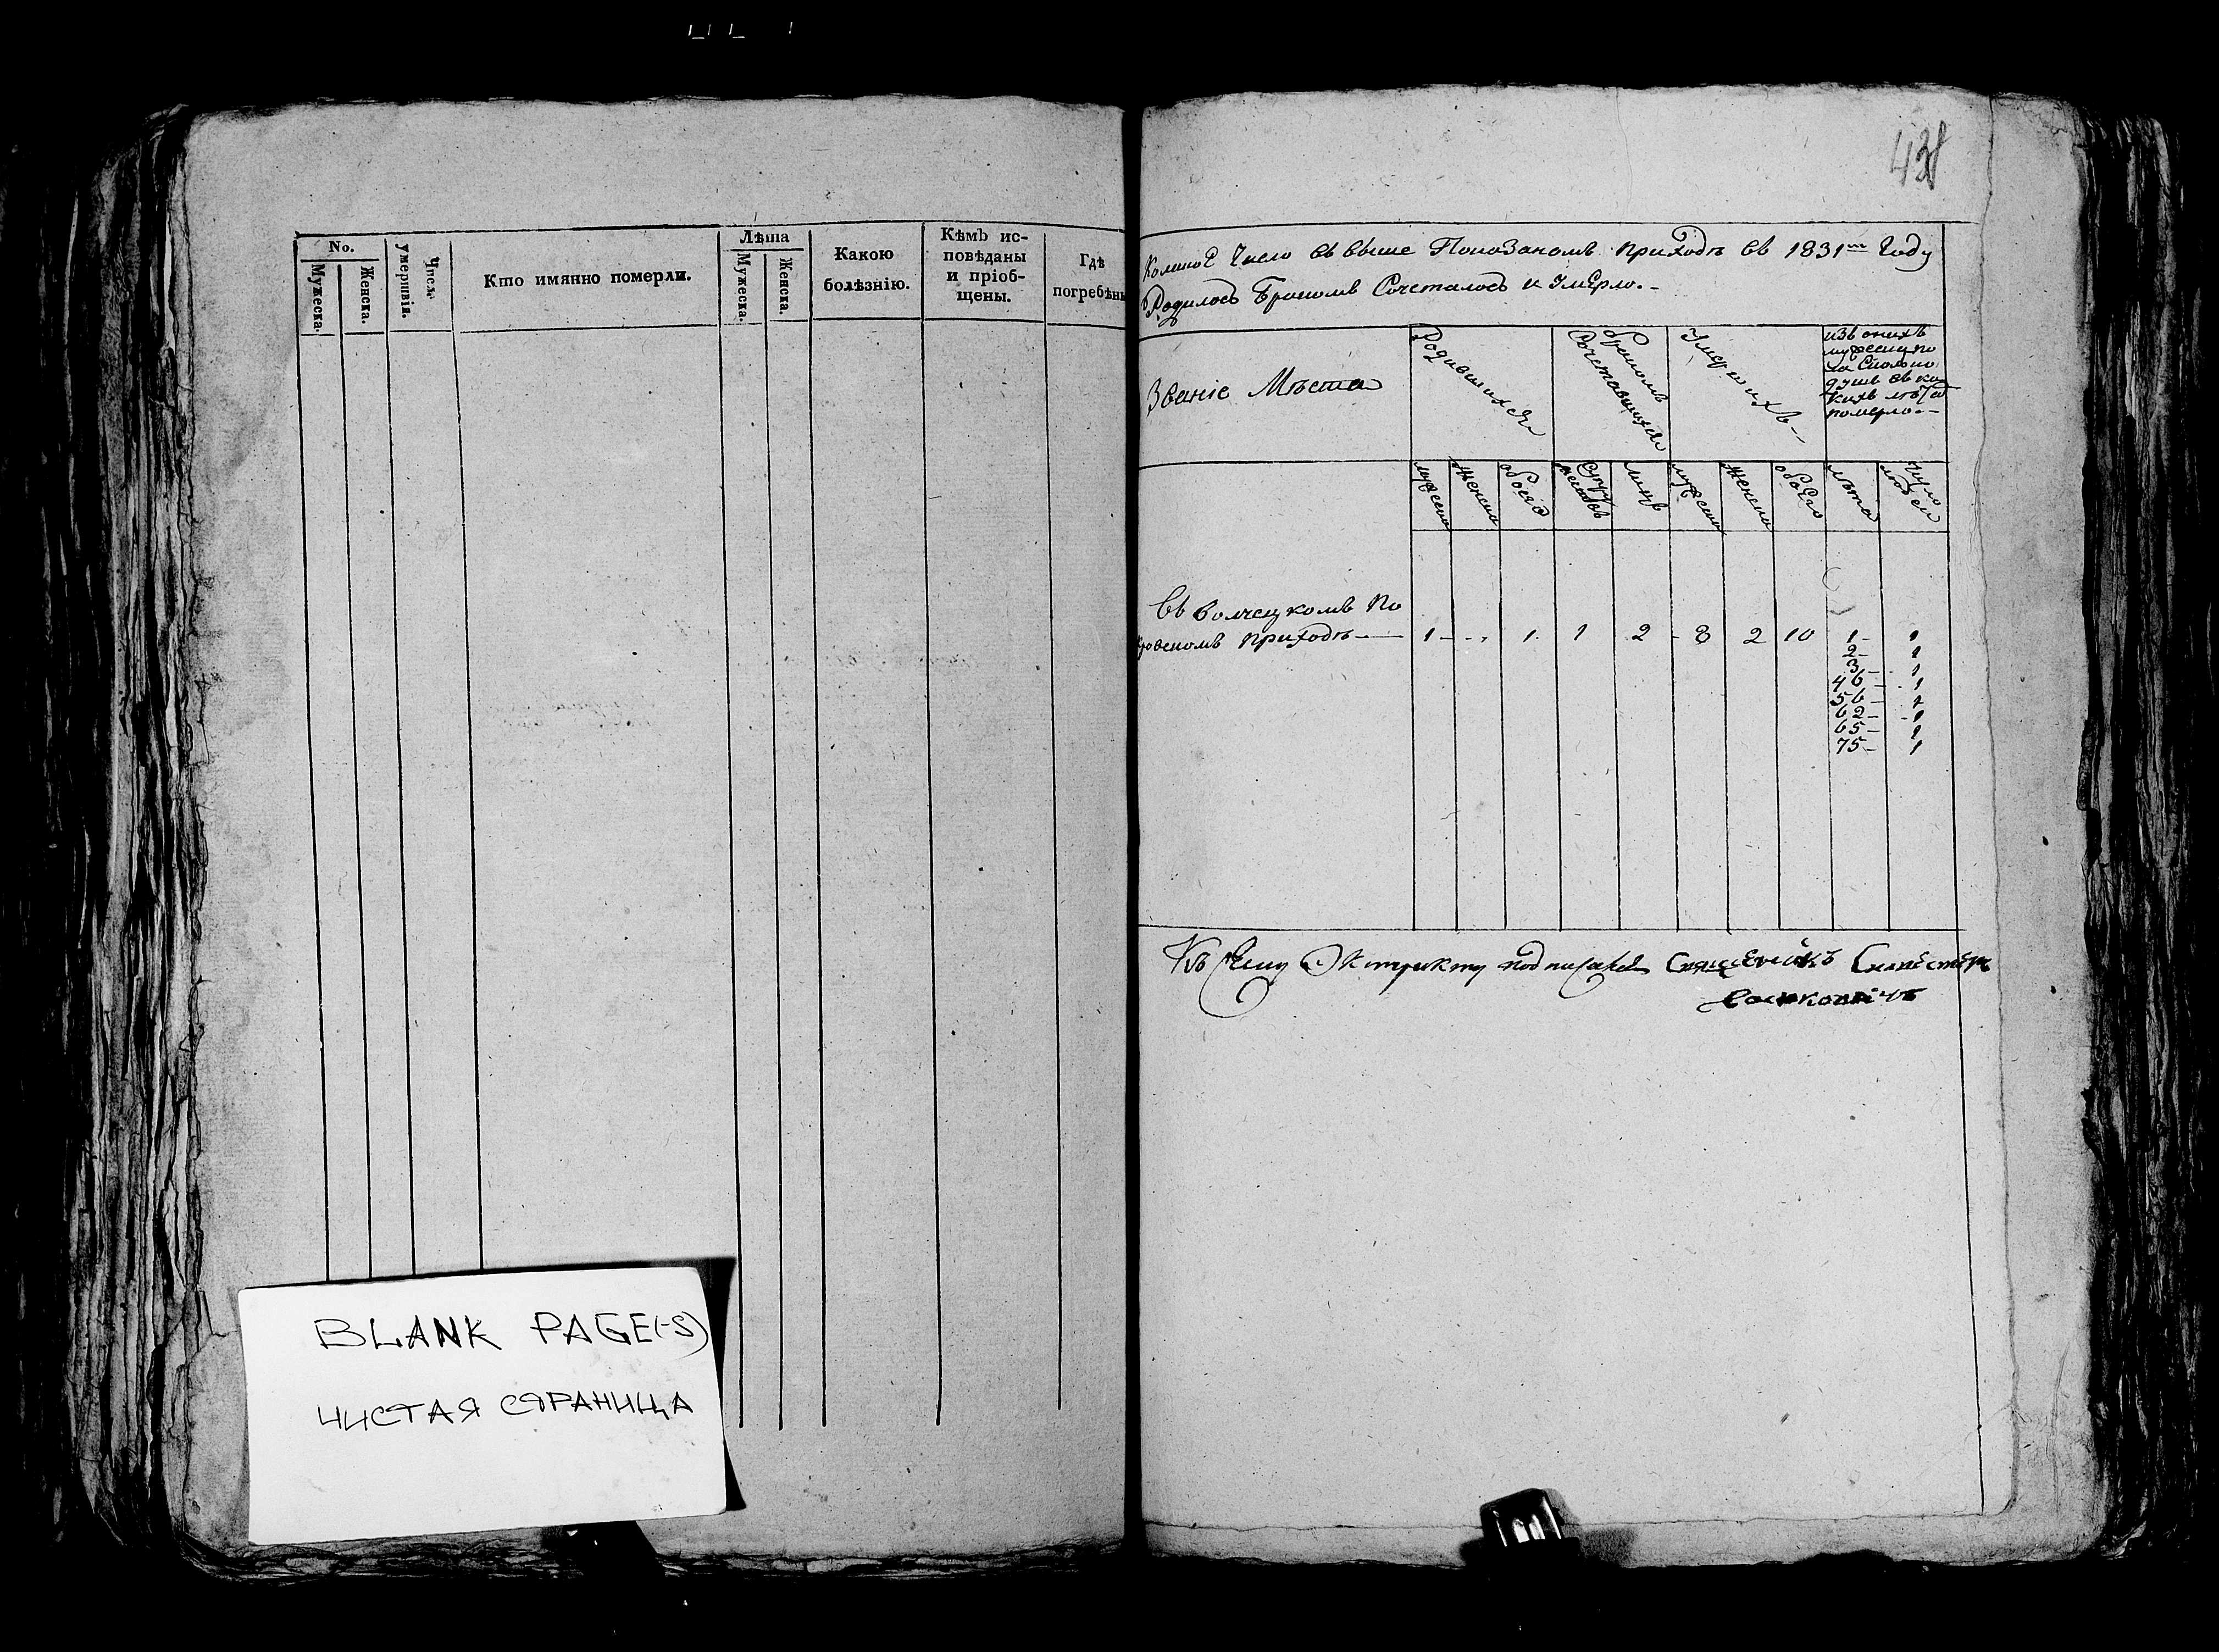 No.
Мужеска.
Женска.
Число умершихъ.
Кто имянно померли.
Лѣта
Мужеска.
Женска.
Какою
болѣзнію.
Кѣмъ ис-
повѣданы
и пріоб-
щены.
Гдѣ
погребѣны
BLANK PAGE(-S)
ЧИСТАЯ СТРАНИЦА
438
Коликое Число въ выше Показаномъ приходѣ въ 1831м Году
Родилось Бракомъ Сочеталось и Умерло.-
Званіе Мѣста
Родившихся
Бракомъ
Сочетавшихся
Умершихъ-
изъ онихъ
мужеска по
ла Сколько
душъ въ ка
кихъ лѣта
померло.-
мужеска
Женска
обоего
Супру
жествъ
лицъ
мужеска
Женска
обоего
лѣта
Число
людей
Въ Волчецкомъ По
кровскомъ приходѣ — 1 - - 1. 1 2 - 8 2 10 1- 1
2- 1
3- 1
46- 1
56- 1
62- 1
65- 1
75- 1
Къ Сему Экстракту подписался Священникъ Силвестеръ